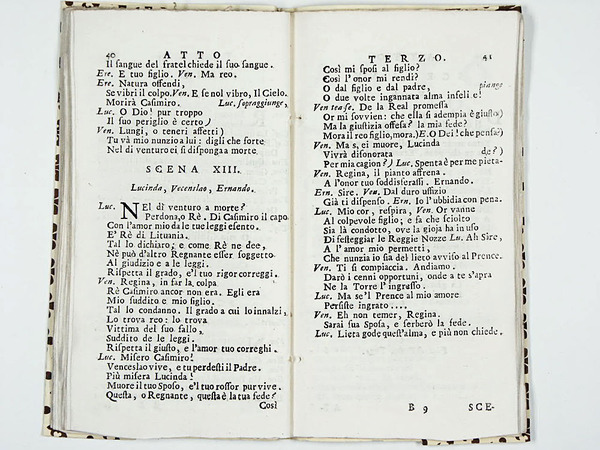 40 ATTO
Il sangue del fratel chiede il suo sangue.
Ere. E tuo figlio. Ven. Ma reo.
Ere. Natura offendi,
Se vibri il colpo. Ven. E se nol vibro, Il Cielo.
Morirà Casimiro. Luc. sopraggiunge,
Luc. O Dio! pur troppo
Il suo periglio è certo)
Ven. Lungi, o teneri affetti)
Tu và mio nunzio a lui: digli che forte
Nel dì venturo ei si disponga a morte
SCENA XIII.
Lucinda, Vecenslao, Ernando.
Luc. NEl dì venturo a morte?
Perdona, o Rè. Di Casimiro il capo
Con l'amor mio da le tue leggi esento.
E' Rè di Lituania.
Tal lo dichiaro; e come Rè ne dee,
Nè può d'altro Regnante esser soggetto
Al giudizio e a le leggi.
Rispetta il grado, e'l tuo rigor correggi.
Ven. Regina, in far la colpa
Rè Casimiro ancor non era. Egli era
Mio suddito e mio figlio.
Tal lo condanno. Il grado a cui lo innalzi,
Lo trova reo: lo trova
Vittima del suo fallo,
Suddito de le leggi.
Rispetta il giusto, e l'amor tuo correghi.
Luc. Misero Casimiro!
Venceslao vive, e tu perdesti il Padre.
Più misera Lucinda!
Muore il tuo Sposo, e'l tuo rossor pur vive.
Questa, o Regnante, questa è la tua fede?
Così
TERZO. 41
Così mi sposi al figlio?
Così l'onor mi rendi?
O dal figlio e dal padre, piange
O due volte ingannata alma infeli e!
Ven tra se. De la Real promessa
Or mi sovvien: che ella si adempia è giusto)
Ma la giustizia offesa? la mia fede?
Mora il reo figlio, mora.) E.O Dei! che pensa?)
Ven. Ma s, ei muore, Lucinda
Vivrà disonorata de?)
Per mia cagion?) Luc. Spenta è per me pieta-
Ven. Regina, il pianto affrena.
A l'onor tuo soddisferassi. Ernando.
Ern. Sire. Ven. Dal duro uffizio
Già ti dispenso. Ern. Io l'ubbidia con pena.
Luc. Mio cor, respira, Ven. Or vanne
Al colpevole figlio; e fa che sciolto
Sia là condotto, ove la gioja ha in uso
Di festeggiar le Reggie Nozze Lu. Ah Sire,
A l'amor mio permetti,
Che nunzio io sia del lieto avviso al Prence.
Ven. Ti si compiaccia. Andiamo.
Darò i cenni opportuni, onde a te s'apra
Ne la Torre l'ingresso.
Luc. Ma se'l Prence al mio amore
Persiste ingrato....
Ven. Eh non temer, Regina.
Sarai sua Sposa, e serberò la fede.
Luc. Lieta gode quest'alma, e più non chiede.
B 9 SCE-